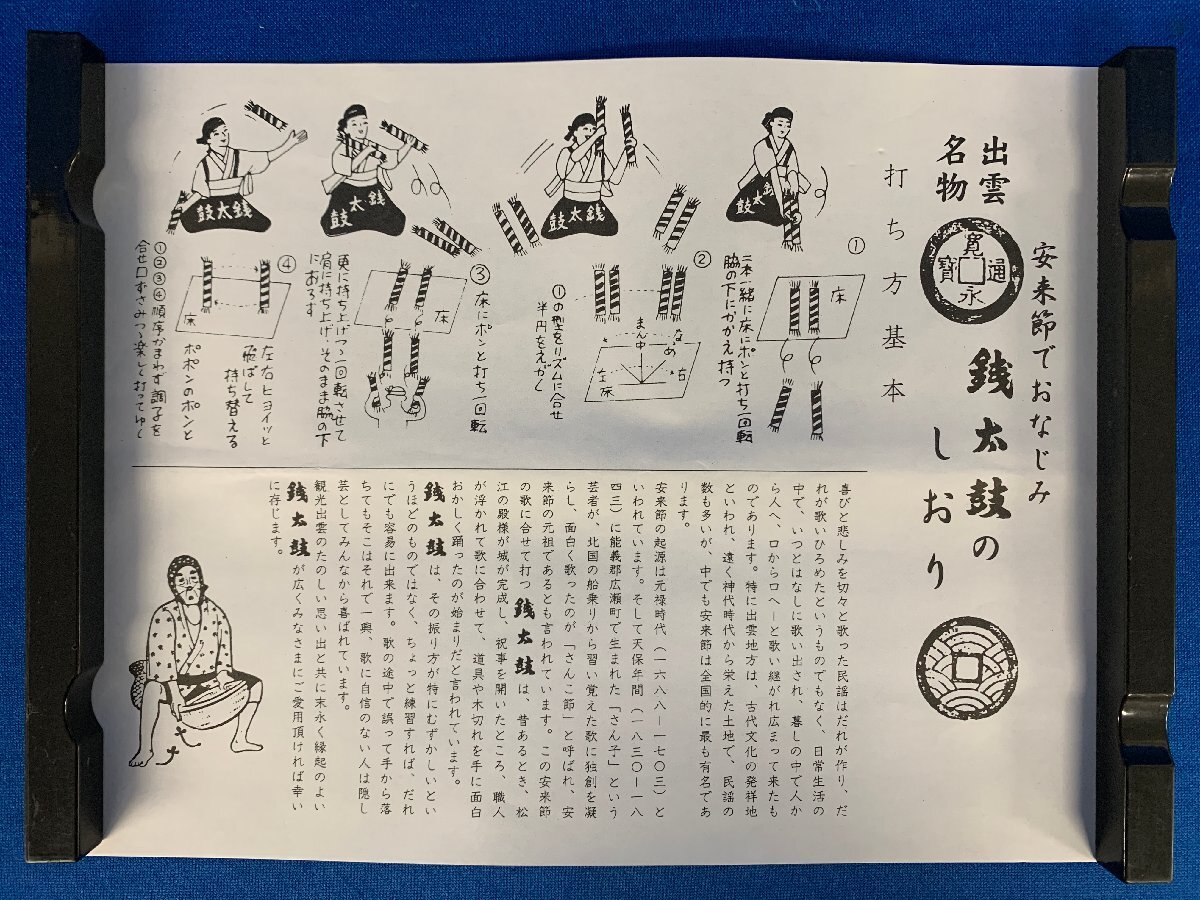 安来節でおなじみ
出雲
名物
寛永通寳
銭太鼓の
しおり
打ち方基本
①
床
二本一緒に床にポンと打ち一回転
脇の下にかかえ持つ
②
ななめ
右
まん中
左
床
①の型をリズムに合せ
半円をえがく
③
床にポンと打ち一回転
床
更に持ち上げつゝ一回転させて
肩に持ち上げ、そのまま脇の下
におろす
④
床
左右ヒョイッと
飛ばして
持ち替える
ポポンのポンと
①②③④順序かまわず調子を
合せ口ずさみつゝ楽しく打ってゆく
銭太鼓
銭太鼓
銭太鼓
銭太鼓
喜びと悲しみを切々と歌った民謡はだれが作り、だ
れが歌いひろめたというものでもなく、日常生活の
中で、いつとはなしに歌い出され、暮しの中で人か
ら人へ、口から口へーと歌い継がれ広まって来たも
のであります。特に出雲地方は、古代文化の発祥地
といわれ、遠く神代時代から栄えた土地で、民謡の
数も多いが、中でも安来節は全国的に最も有名であ
ります。
安来節の起源は元禄時代（一六八八ー一七〇三）と
いわれています。そして天保年間（一八三〇ー一八
四三）に能義郡広瀬町で生まれた「さん子」という
芸者が、北国の船乗りから習い覚えた歌に独創を凝
らし、面白く歌ったのが「さんこ節」と呼ばれ、安
来節の元祖であるとも言われています。この安来節
の歌に合せて打つ銭太鼓は、昔あるとき、松
江の殿様が城が完成し、祝事を開いたところ、職人
が浮かれて歌に合わせて、道具や木切れを手に面白
おかしく踊ったのが始まりだと言われています。
銭太鼓は、その振り方が特にむずかしいとい
うほどのものではなく、ちょっと練習すれば、だれ
にでも容易に出来ます。歌の途中で誤って手から落
ちてもそこはそれで一興、歌に自信のない人は隠し
芸としてみんなから喜ばれています。
観光出雲のたのしい思い出と共に末永く縁起のよい
銭太鼓が広くみなさまにご愛用頂ければ幸い
に存じます。